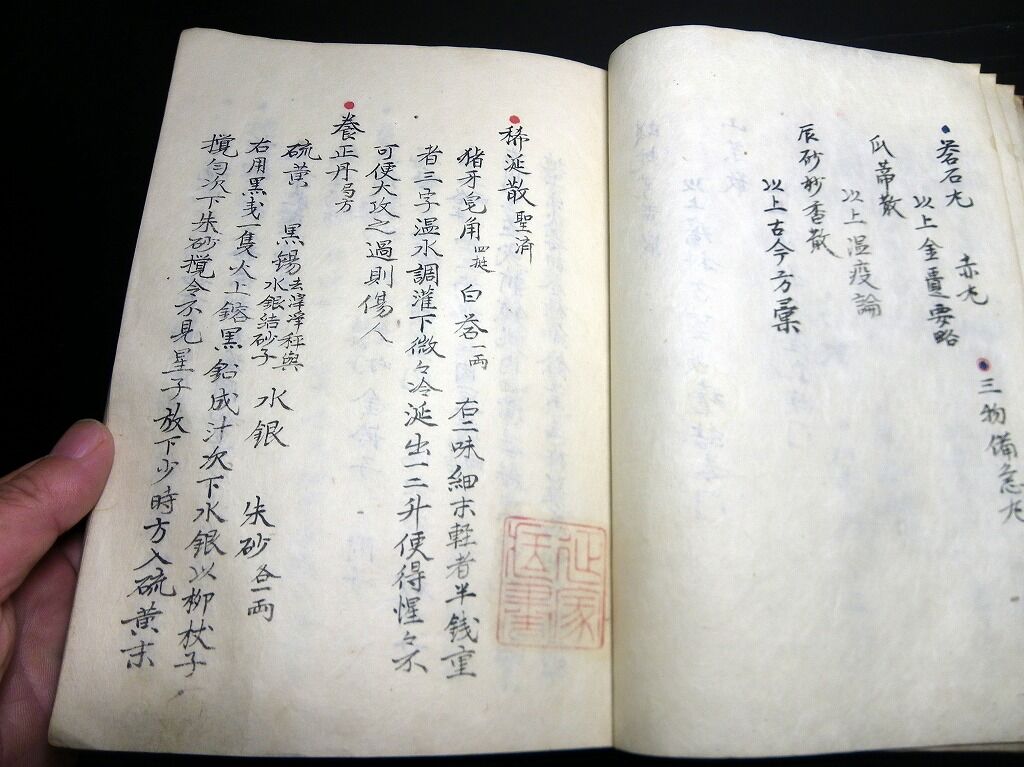 礬石丸　赤丸
以上金匱要略
三物備急丸
瓜蒂散
以上温疫論
辰砂妙香散
以上古今方彙
稀涎散 聖済
猪牙皂角 四挺 白礬 一両 右二味細末軽者半銭重
者三字温水調灌下微々冷涎出一二升便得惺々不
可便大攻之過則傷人
養正丹 局方
硫黄　黒錫 去滓淨秤與水銀結砂子　水銀　朱砂 各一両
右用黒盞一隻火上鎔黒鉛成汁次下水銀以柳杖子
攪匀次下朱砂攪令不見星子放下少時方入硫黄末
家
医書